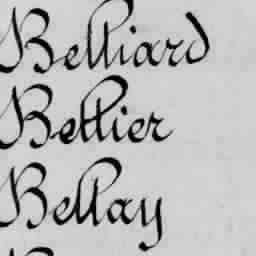 Belliard
Bellier
Bellay